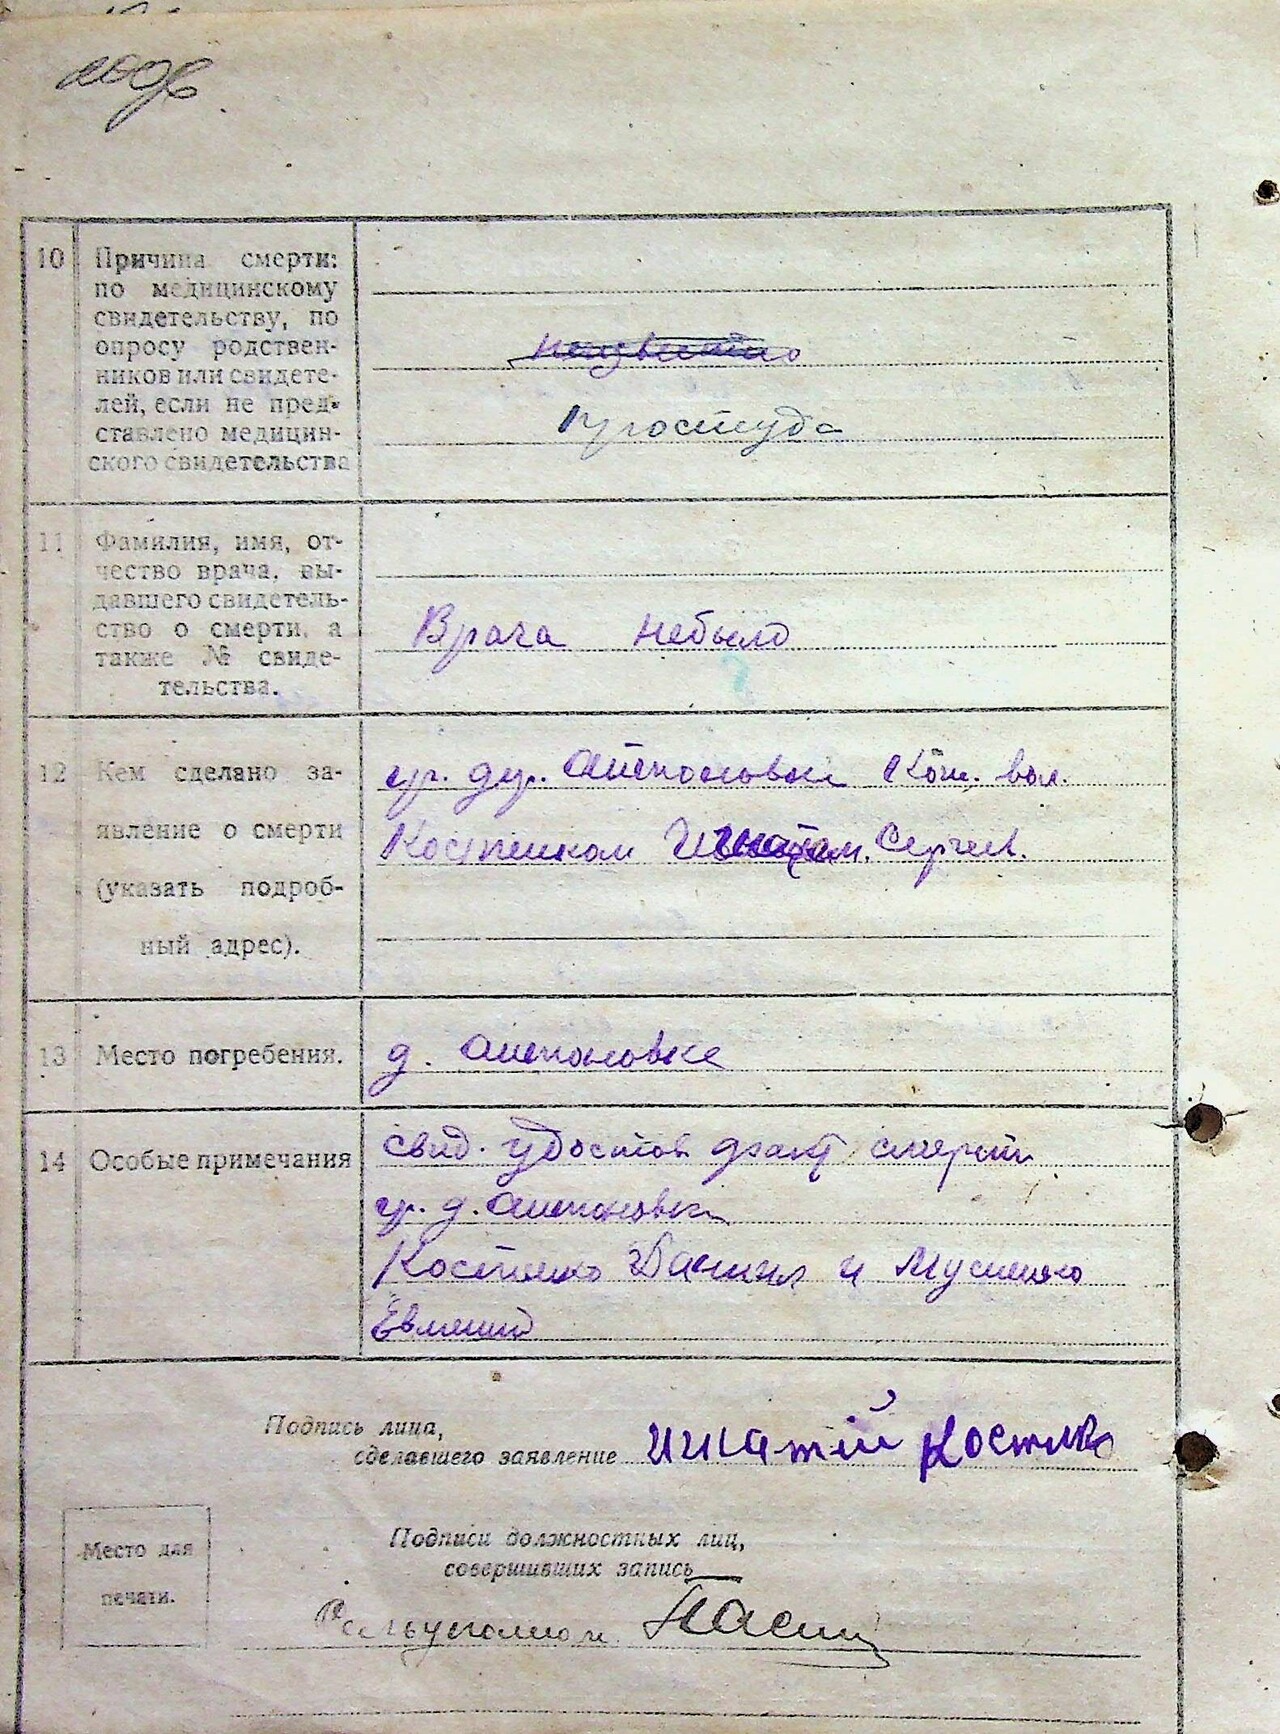 10 Причина смерти:
по медицинскому
свидетельству, по
опросу родствен-
ников или свидете-
лей, если не пред-
ставлено медицин-
ского свидетельства
неизвестно
Простуда
11 Фамилия, имя, от-
чество врача, вы-
давшего свидетель-
ство о смерти, а
также № свиде-
тельства.
Врача небыло
12 Кем сделано за-
явление о смерти
(указать подроб-
ный адрес).
гр. дер. Антоновки вол.
Сергеев.
13 Место погребения.
д. Антоновке
14 Особые примечания
свид. удостов факт смерти
гр. д. Антоновки
Костенко Данил и
Евмений
Подпись лица,
сделавшего заявление Игнатій
Место для
печати.
Подписи должностных лиц,
совершивших запись